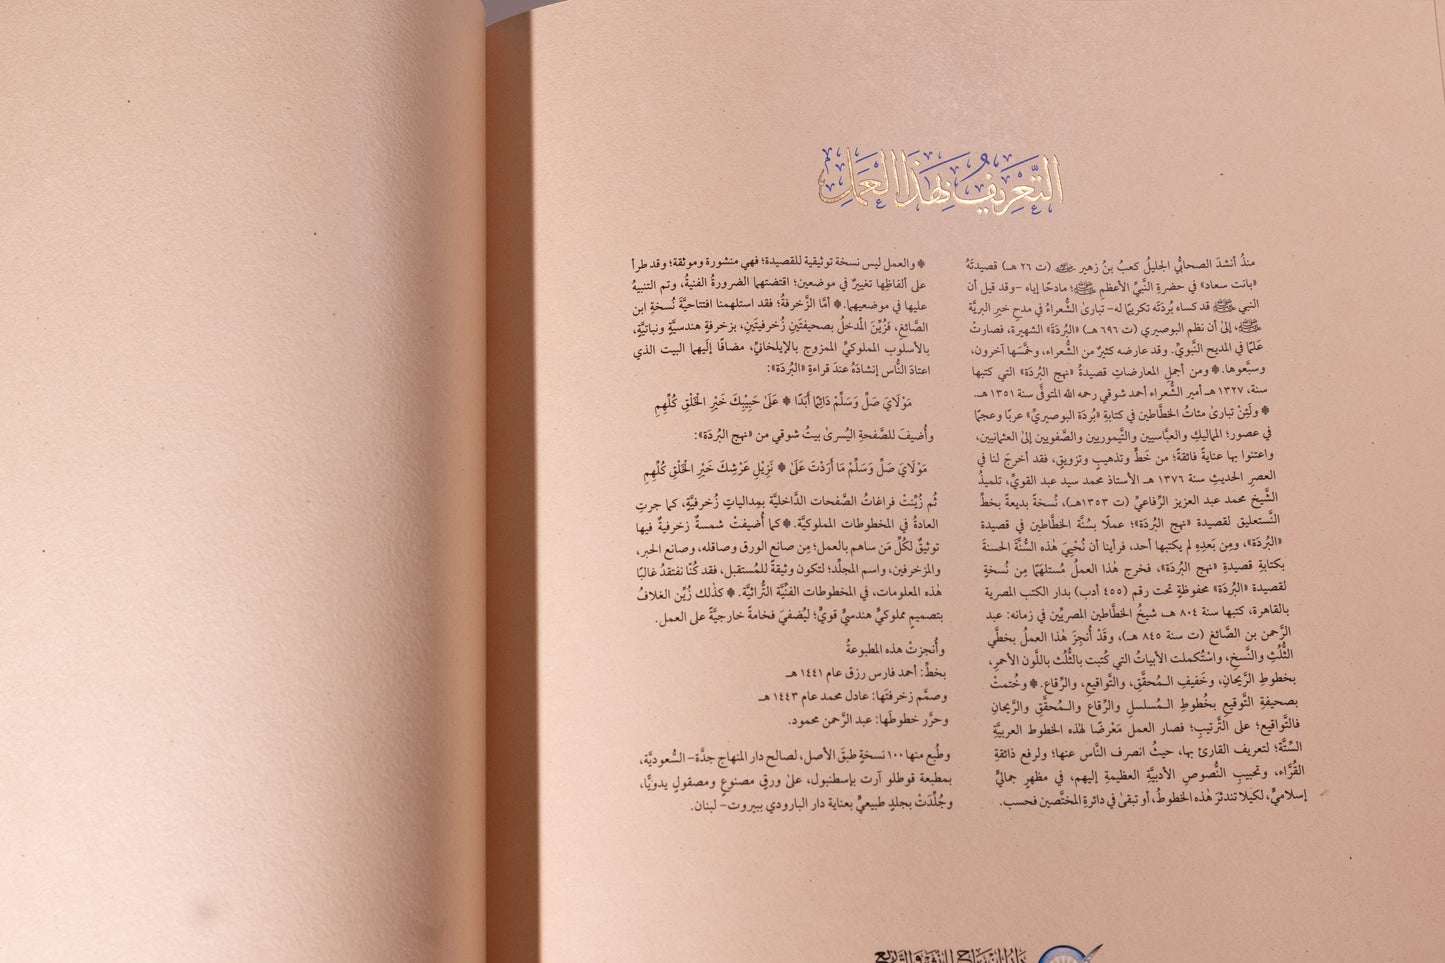 التَّعْرِيفُ بِهَذَا العَمَلِ
منذُ أنشدَ الصحابيُّ الجليلُ كعبُ بنُ زهير ﷺ (ت ٢٦ هـ) قصيدتَهُ
«بانت سعاد» في حضرةِ النَّبيِّ الأعظمِ ﷺ؛ مادحًا إياه -وقد قيل أن
النبي ﷺ قد كساه بُردَتَه تكريمًا له- تبارىٰ الشُّعراءُ في مدحِ خيرِ البريَّة
ﷺ، إلىٰ أن نظم البوصيري (ت ٦٩٦ هـ) «البُردَة» الشهيرة، فصارتْ
عَلَمًا في المديح النَّبويِّ. وقد عارضه كثيرٌ من الشُّعراء، وخمَّسَها آخرون،
وسبَّعوها. * ومن أجملِ المعارضاتِ قصيدةُ «نهج البُردَة» التي كتبها
سنة، ١٣٢٧ هـ أمير الشُّعراء أحمد شوقي رحمه الله المتوفَّى سنة ١٣٥١ هـ.
* ولَئِنْ تبارىٰ مئاتُ الخطَّاطين في كتابةِ «بُردَة البوصيريِّ» عربًا وعجمًا
في عصور؛ المماليكِ والعبَّاسيين والتَّيموريين والصَّفويين إلىٰ العثمانيين،
واعتنوا بها عنايةً فائقةً؛ من خَطٍّ وتذهيبٍ وتزويقٍ، فقد أخرجَ لنا في
العصرِ الحديثِ سنة ١٣٧٦ هـ الأستاذ محمد سيد عبد القويِّ، تلميذُ
الشَّيخ محمد عبد العزيز الرِّفاعيِّ (ت ١٣٥٣هـ)، نُسخةً بديعةً بخطِّ
النَّستعليق لقصيدة «نهج البُردَة»؛ عملًا بسُنَّة الخطَّاطين في قصيدة
«البُردَة»، ومِن بَعدِهِ لم يكتبها أحد، فرأينا أن نُحْيِيَ هٰذه السُّنَّةَ الحسنةَ
بكتابةِ قصيدةِ «نهج البُردَة»، فخرج هٰذا العملُ مُستلهَمًا مِن نُسخةٍ
لقصيدة «البُردَة» محفوظةٍ تحت رقم (٤٥٥ أدب) بدار الكتب المصرية
بالقاهرة، كتبها سنة ٨٠٤ هـ شيخُ الخطَّاطين المصريِّين في زمانه: عبد
الرَّحمن بن الصَّائغ (ت سنة ٨٤٥ هـ)، وقَدْ أُنجِزَ هٰذا العملُ بخطَّي
الثُّلُثِ والنَّسخِ، واسْتُكملت الأبياتُ التي كُتبت بالثُّلُث باللَّون الأحمرِ،
بخطوطِ الرَّيحانِ، وخَفيفِ المُحقَّقِ، والتَّواقيعِ، والرِّقاعِ. * وخُتمتْ
بصحيفةِ التَّوقيعِ بخُطوطِ المُسلسلِ والرِّقاعِ والمُحقَّقِ والرَّيحانِ
فالتَّواقيع؛ على التَّرتيب؛ فصار العمل مَعْرضًا لهٰذه الخطوط العربيَّةِ
السِّتَّة؛ لتعريف القارئ بها، حيثُ انصرف النَّاس عنها؛ ولرفع ذائقةِ
القُرَّاء، وتحبيبِ النُّصوصِ الأدبيَّةِ العظيمةِ إليهم، في مظهرٍ جماليٍّ
إسلاميٍّ، لكيلا تندثرَ هٰذه الخطوطُ، أو تبقىٰ في دائرةِ المختَّصين فحسب.
* والعمل ليس نسخة توثيقية للقصيدة؛ فهي منشورة وموثقة؛ وقد طرأ
علىٰ ألفاظِها تغييرٌ في موضعين؛ اقتضتهما الضرورةُ الفنيةُ، وتم التنبيهُ
عليها في موضعيهما. * أمَّا الزَّخرفةُ؛ فقد استلهمنا افتتاحيَّةَ نُسخةِ ابن
الصَّائغِ، فَزُيِّنَ المُدخلُ بصحيفتَين زُخرفيتَين، بزخرفةٍ هندسيَّةٍ ونباتيَّةٍ،
بالأسلوب المملوكيِّ الممزوج بالإيلخانيِّ، مضافًا إلَيهما البيت الذي
اعتادَ النَّاس إنشادَهُ عندَ قراءةِ «البُردَة»:
مَوْلَايَ صَلِّ وَسَلِّمْ دَائِمًا أَبَدًا * عَلَىٰ حَبِيبِكَ خَيْرِ الْخَلْقِ كُلِّهِمِ
وأُضيفَ للصَّفحةِ اليُسرىٰ بيتُ شوقي من «نهج البُردَة»:
مَوْلَايَ صَلِّ وَسَلِّمْ مَا أَرَدْتَ عَلَىٰ * نَزِيلِ عَرْشِكَ خَيْرِ الْخَلْقِ كُلِّهِمِ
ثُم زُيِّنتْ فراغاتُ الصَّفحات الدَّاخليَّة بمِدالياتٍ زُخرفيَّةٍ، كما جرتِ
العادةُ في المخطوطات المملوكيَّة. * كما أُضيفتْ شمسةٌ زخرفيةٌ فيها
توثيقٌ لكُلِّ مَن ساهم بالعمل؛ مِن صانعِ الورقِ وصاقله، وصانع الحبر،
والمزخرفين، واسم المجلِّد؛ لتكون وثيقةً للمُستقبل، فقد كُنَّا نفتقدُ غالبًا
هٰذه المعلومات، في المخطوطات الفنِّيَّة التُّراثيَّة. * كذٰلك زُيِّن الغلافُ
بتصميمٍ مملوكيٍّ هندسيٍّ قويٍّ؛ ليُضفيَ فخامةً خارجيَّةً على العمل.
وأُنجزتْ هذه المطبوعةُ
بخطِّ: أحمد فارس رزق عام ١٤٤١ هـ
وصمَّم زخرفتَها: عادل محمد عام ١٤٤٣ هـ
وحرَّر خطوطَها: عبد الرَّحمن محمود.
وطُبع منها ١٠٠ نسخةٍ طبقَ الأصل، لصالح دار المنهاج جدَّة- السُّعوديَّة،
بمطبعة قوطلو آرت بإسطنبول، علىٰ ورقٍ مصنوعٍ ومصقولٍ يدويًّا،
وجُلِّدَتْ بجلدٍ طبيعيٍّ بعناية دار البارودي ببيروت- لبنان.